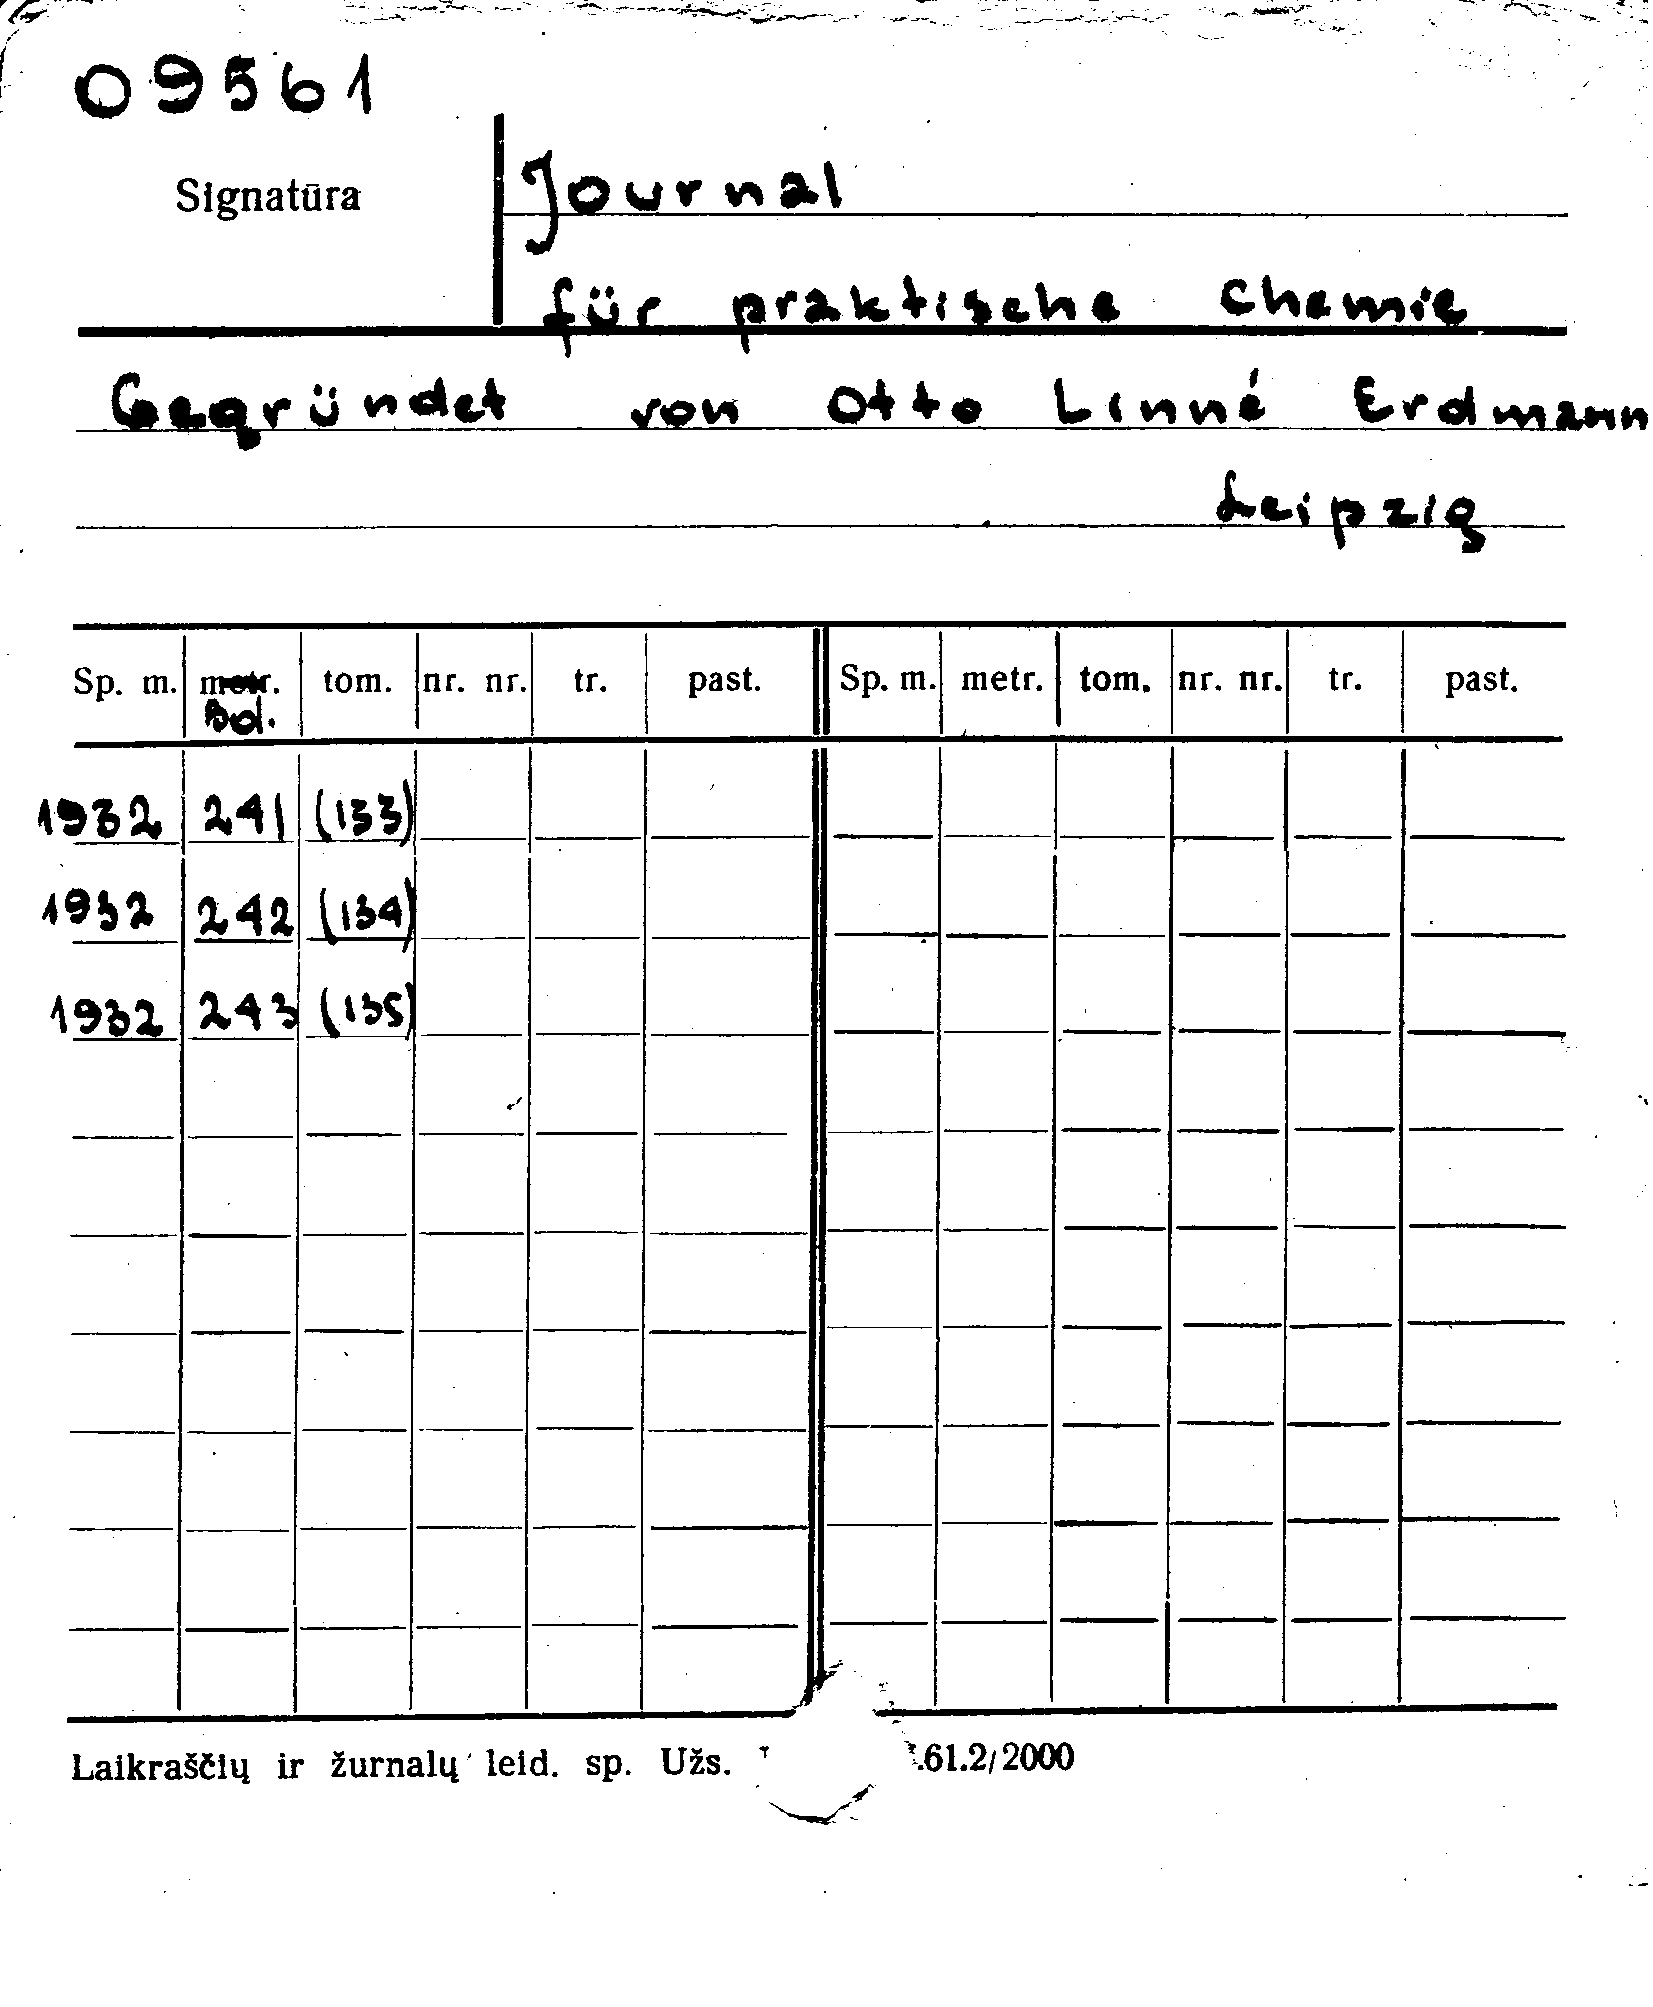 09561
Signatūra
Journal
für praktische Chemie
Gegründet von Otto Linné Erdmann
Leipzig
Sp. m. metr. tom. nr. nr. tr. past. Sp. m. metr. tom. nr. nr. tr. past.
Bd.
1932 241 (133)
1932 242 (134)
1932 243 (135)
Laikraščių ir žurnalų leid. sp. Užs. .61.2/2000